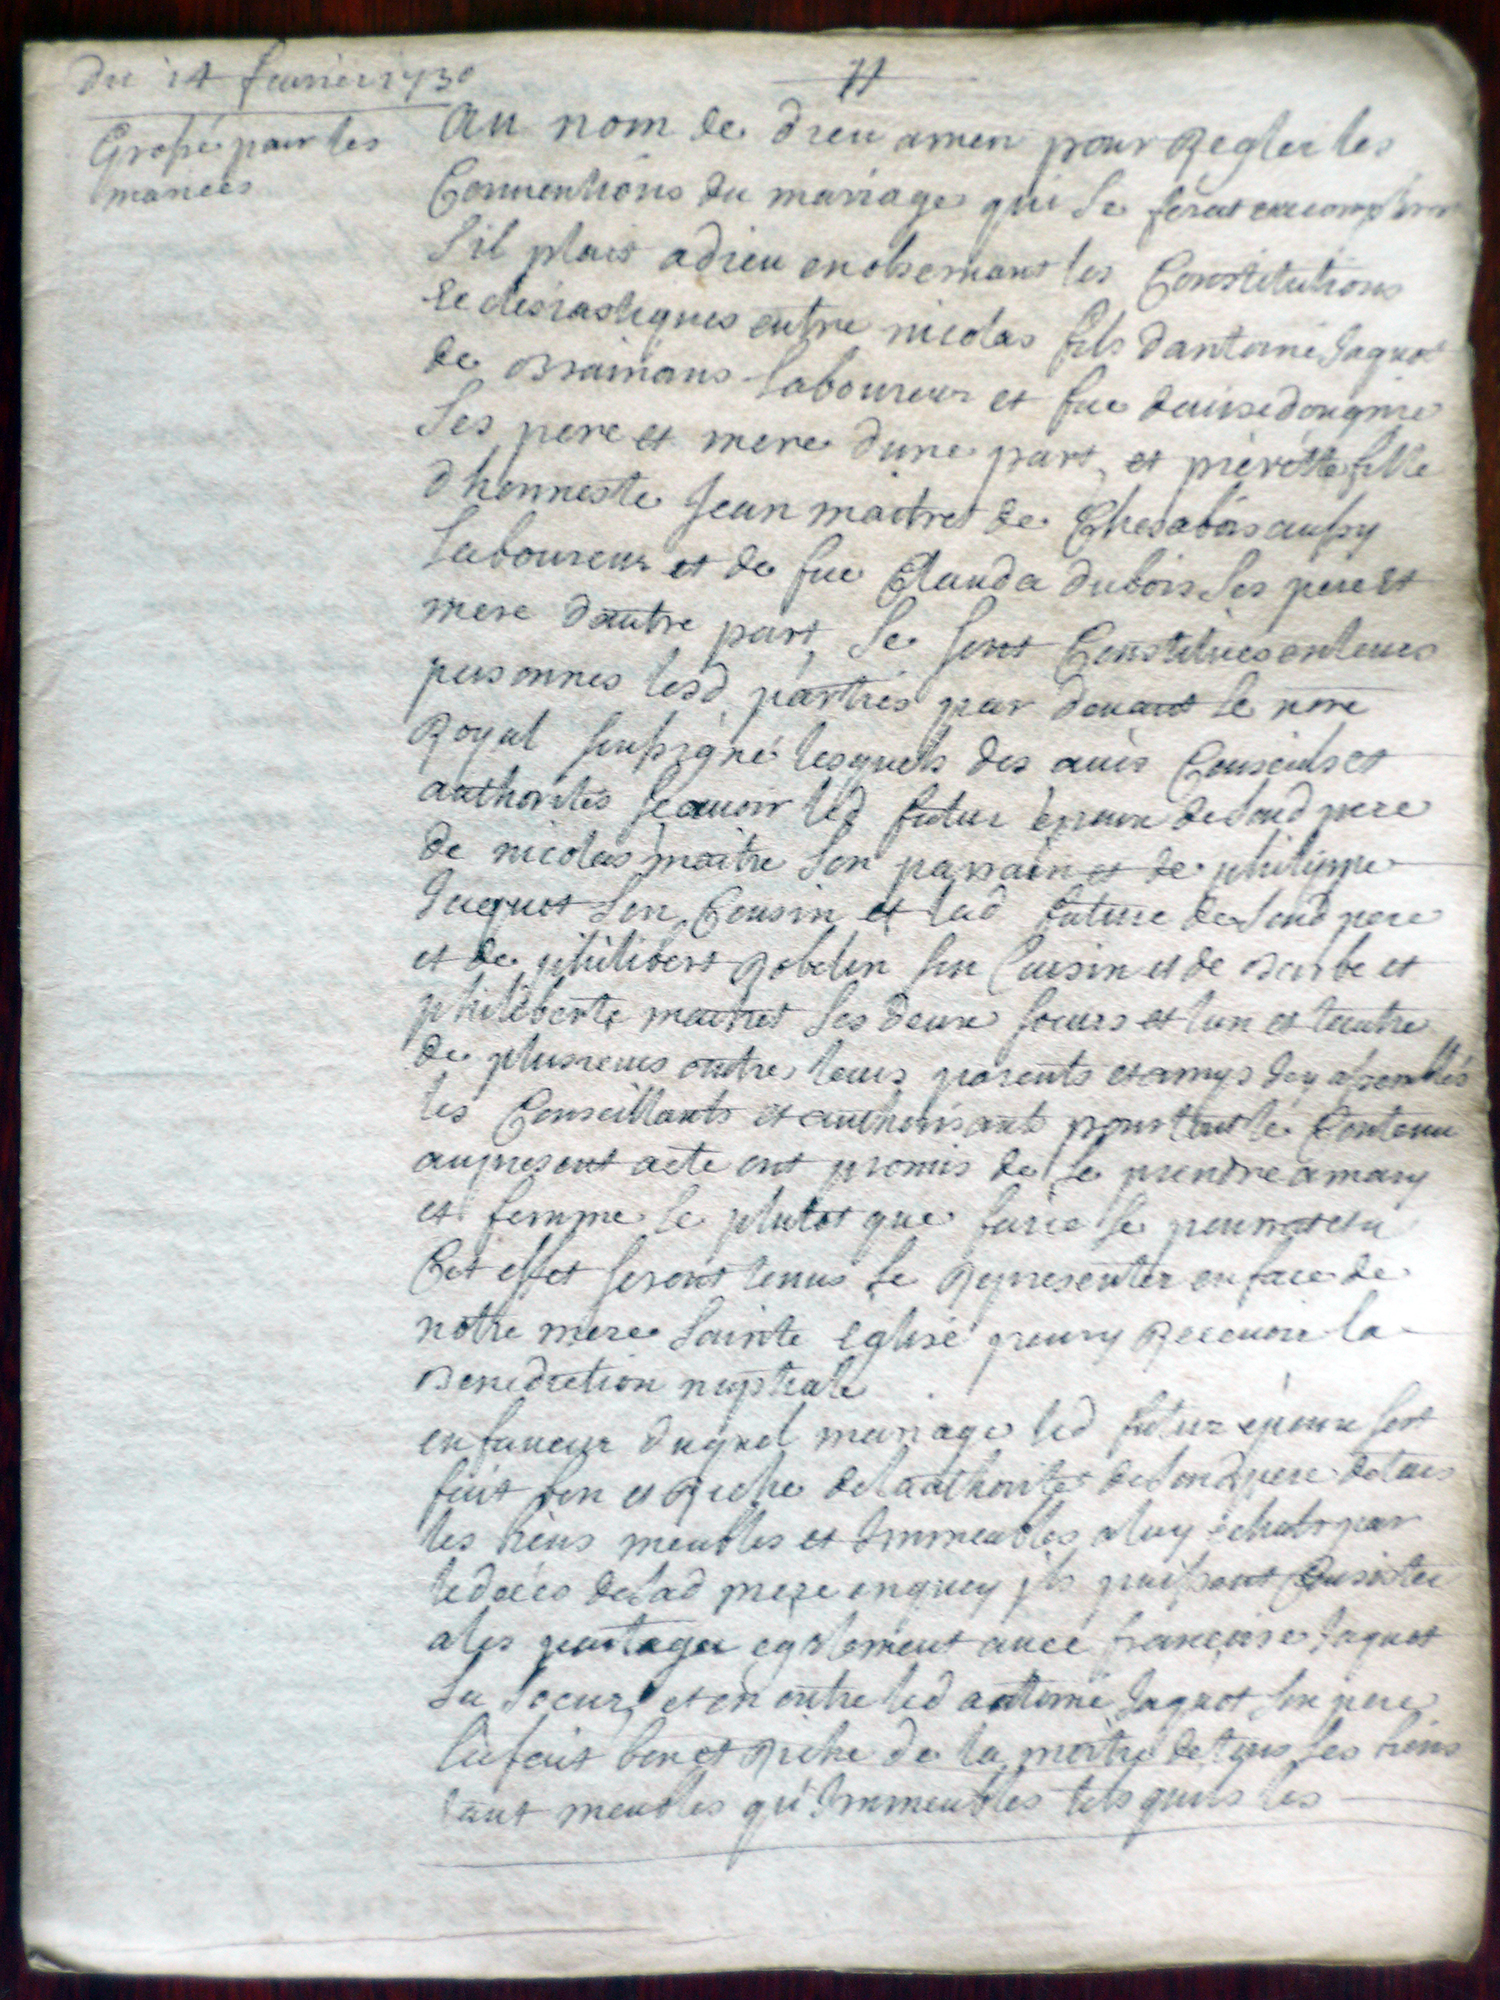 Du 14 fevrier 1730
Grossé pour les
mariées
Au nom de dieu amen pour Regler les
Conventions du mariage qui se ferat et accomplira
s'il plait adieu enobservant les Constitutions
Eclesiastiques entre nicolas fils dantoine Jaquot
de Brainans laboureur et fue
ses pere et mere dune part, et pierette fille
dhonneste Jean maitret de Chesabois aussy
laboureur et de fue Clauda dubois ses pere et
mere dautre part, se sont Constitués enleurs
personnes lesd parties par devant le nore
Royal soussigné lesquels des avis Conseils et
authorités scavoir led futur epoux desond pere
de nicolas maitre son parrain et de philippe
Jacquot son Cousin et lad future desond pere
et de philibert Robelin son Cousin et de Barbe et
philiberte maitret ses deux soeurs et lun et lautre
de plusieurs autres leurs parents et amys icy assemblés
les Conseillants et authorisants pour tout le Contenu
aupresent acte ont promis de se prendre amary
et femme le plutot que faire se pourrat et a
Cet effet seront tenus se Representer enface de
notre mere Sainte Eglise poury Recevoir la
Benediction nuptiale
enfaveur duquel mariage led futur epoux sest
fait bon et Riche delauthorité desond pere detous
les biens meubles et Immeubles aluy echuts par
ledeces delad mere enquoy jls puissent Consister
ales partager egalement avec françoise Jaquot
sa soeur, et en outre led antoine Jaquot son pere
la fait bon et Riche de la moitié de tous ses biens
tant meubles qu'Immeubles tels quils les